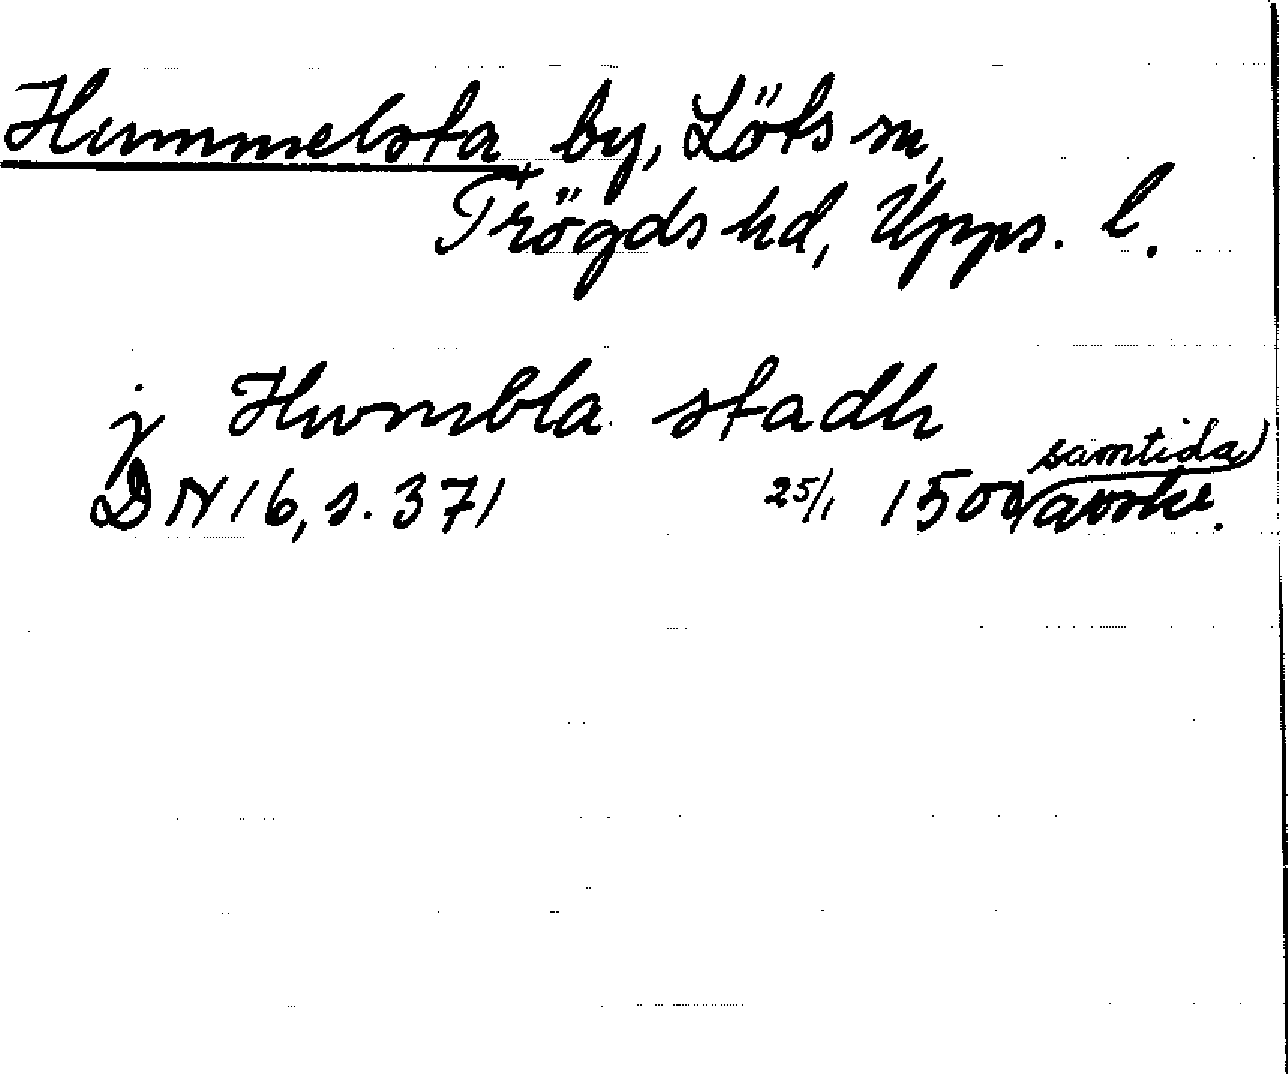 Hummelsta by, Löts sn,
Trögds hd, Upps. l.
j Humbla stadh
DN 16, s. 371 25/1 1500 (samtida)
avskr.